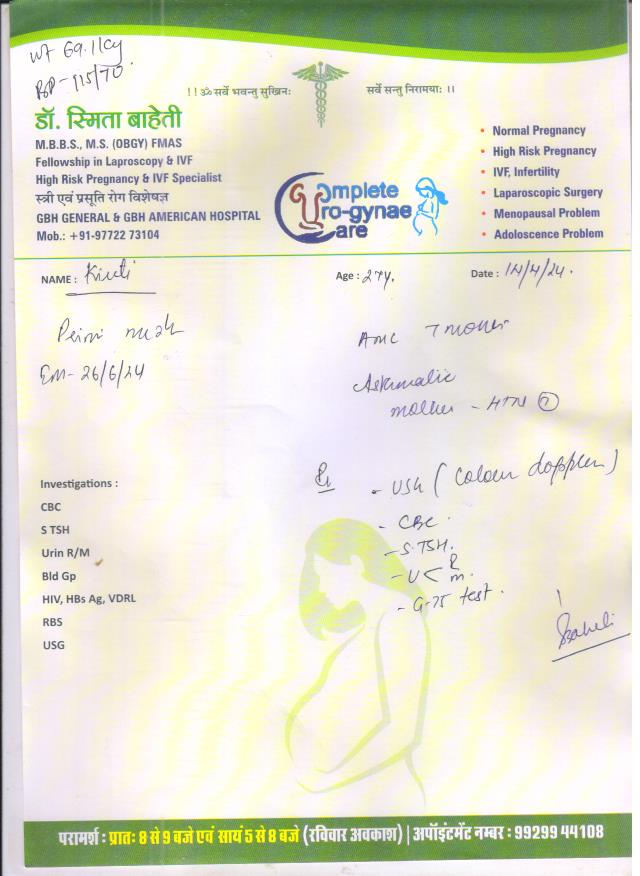 Wt 69.11Kg
BP - 115/70.
!! ॐ सर्वे भवन्तु सुखिनः
सर्वे सन्तु निरामयाः ।।
डॉ. स्मिता बाहेती
M.B.B.S., M.S. (OBGY) FMAS
Fellowship in Laproscopy & IVF
High Risk Pregnancy & IVF Specialist
स्त्री एवं प्रसूति रोग विशेषज्ञ
GBH GENERAL & GBH AMERICAN HOSPITAL
Mob.: +91-97722 73104
Complete
Uro-gynae
Care
• Normal Pregnancy
• High Risk Pregnancy
• IVF, Infertility
• Laparoscopic Surgery
• Menopausal Problem
• Adoloscence Problem
NAME :
Age : 27y.
Date : 14/4/24.
Primi
26/6/24
7
Asthmatic
mother - HTN
Investigations :
CBC
S TSH
Urin R/M
Bld Gp
HIV, HBs Ag, VDRL
RBS
USG
Rx
- USG (Colour doppler)
- CBC.
- S.TSH.
- U < R
m.
- G-75 test.
परामर्श : प्रातः 8 से 9 बजे एवं सायं 5 से 8 बजे (रविवार अवकाश) | अपॉइंटमेंट नम्बर : 99299 44108